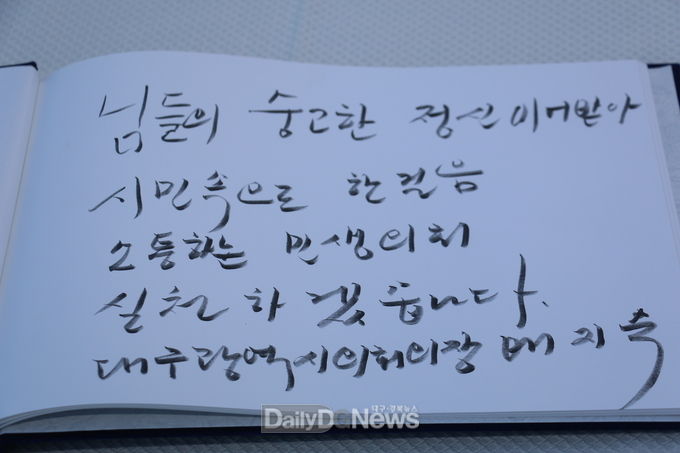 님들의 숭고한 정신 이어받아
시민속으로 한걸음
소통하는 민생의회
실천하겠습니다.
대구광역시의회의장 배지숙
대구·경북뉴스
DailyDgNews